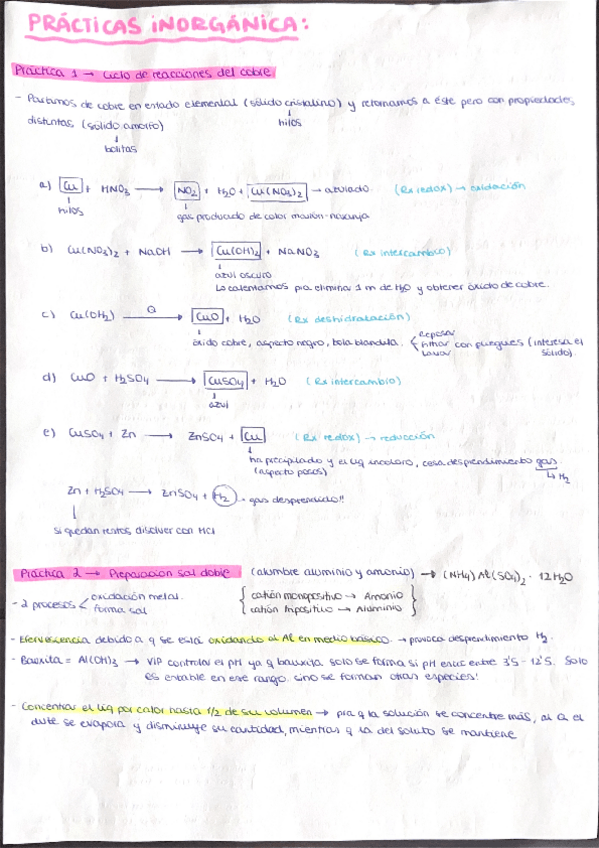 PRÁCTICAS INORGÁNICA:
Práctica 1 → Ciclo de reacciones del cobre
- Partimos de cobre en estado elemental (sólido cristalino) y retornamos a éste pero con propiedades
↓
hilos
distintas (sólido amorfo)
↓
bolitas
a) Cu + HNO3 → NO2 + H2O + Cu(NO3)2 → azulado. (Rx redox) → oxidación
↓
hilos
↓
gas producido de color marrón-naranja
b) Cu(NO3)2 + NaOH → Cu(OH)2 + NaNO3 (Rx intercambio)
↓
azul oscuro
Lo calentamos pra eliminar 1 m de H2O y obtener óxido de cobre.
c) Cu(OH2) Q → CuO + H2O (Rx deshidratación)
↓
óxido cobre, aspecto negro, bola blandula. { reposar
filtrar con pliegues (interesa el sólido).
lavar
d) CuO + H2SO4 → CuSO4 + H2O (Rx intercambio)
↓
azul
e) CuSO4 + Zn → ZnSO4 + Cu (Rx redox) → reducción
↓
ha precipitado y el liq incoloro, cesa desprendimiento gas.
(aspecto posos) ↳ H2
Zn + H2SO4 → ZnSO4 + H2 → gas desprendido!!
↓
si quedan restos disolver con HCl
Práctica 2 → Preparación sal doble (alumbre aluminio y amonio) → (NH4)Al(SO4)2 · 12H2O
- 2 procesos < oxidación metal.
forma sal
{ catión monopositivo → Amonio
catión tripositivo → Aluminio }
- Efervescencia debido a q se está oxidando el Al en medio básico. → provoca desprendimiento H2.
- Bauxita = Al(OH)3 → VIP controlar el pH ya q bauxita solo se forma si pH entre 3'5 - 12'5. Solo
es estable en ese rango. sino se forman otras especies!
- Concentrar el liq por calor hasta 1/2 de su volumen → pra q la solución se concentre más, al Q el
dvte se evapora y disminuye su cantidad, mientras q la del soluto se mantiene